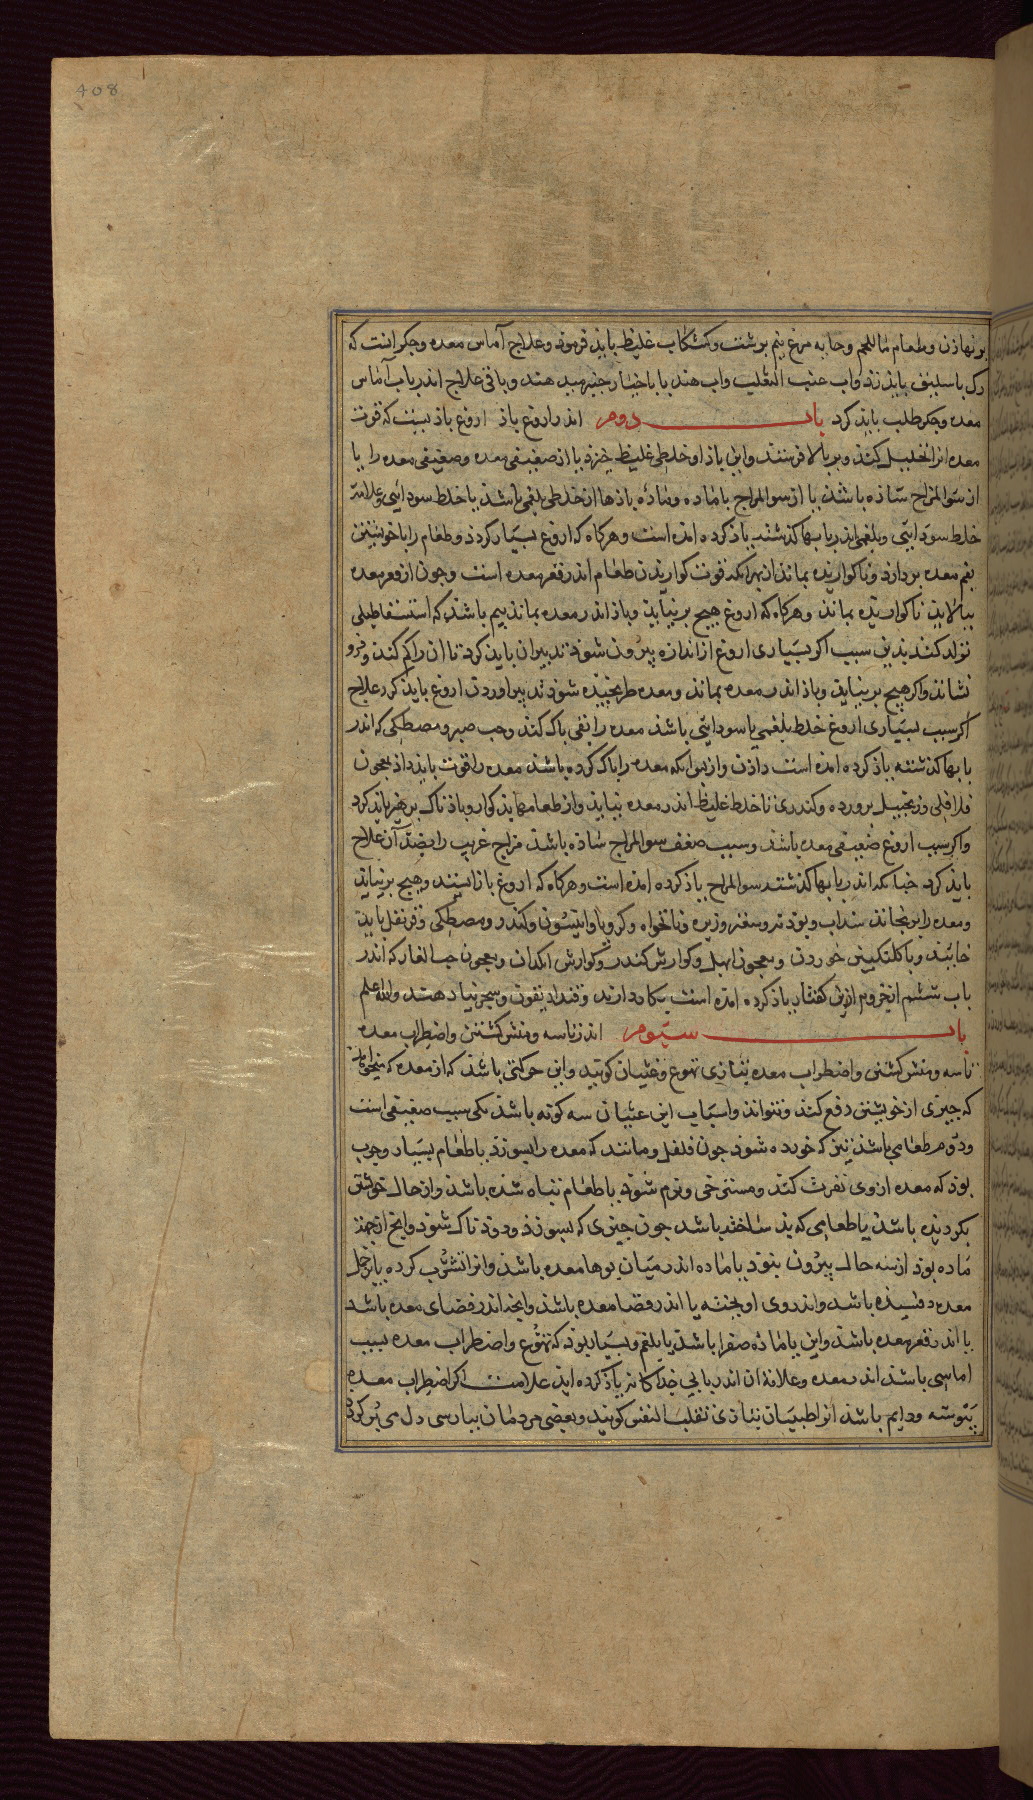 408
برنهاذن وطعام مااللحم وخایه مرغ نیم برشت وکشکاب غلیظ باید فرمود وعلاج آماس معده وجکر انست که
رک باسلیق باید زد واب عنب الثعلب واب هندبا با خیارجنبر میدهند وباقی علاج اندر باب آماس
معده وجکر طلب باید کرد باب دوم اندر اروغ باذ اروغ باذیست که قوت
معده انرا تحلیل کند وبر بالا فرستد واین باذ او خلطی غلیظ خیزد یا از ضعیفی معده وضعیفی معده را یا
از سوالمزاج ساذه باشد یا از سوالمزاج با ماده وماده باذها از خلطی بلغمی باشد یا خلط سودایی وعلامت
خلط سودایی وبلغمی اندر بابها کذشته یاذ کرده امده است وهرکاه که اروغ بسیار کردد وطعام را با خویشتن
بفم معده بردارد وناکواریده بماند از بهر انکه قوت کواریدن طعام اندر قعر معده است وجون از قعر معده
ببالا اید ناکواریده بماند وهرکاه که اروغ هیچ برنیاید وباذ اندر معده بماند بیم باشد که استسقا طبلی
تولد کند بدین سبب اکر بسیاری اروغ از اندازه بیرون شود تدبیر ان باید کرد تا ان را کم کند وفرو
نشاند واکر هیچ برنیاید وباذ اندر معده بماند ومعده طرنجیده شود تدبیر اوردن اروغ باید کرد علاج
اکر سبب بسیاری اروغ خلط بلغمی یا سودایی باشد معده را بقی باک کند وحب صبر ومصطکی که اندر
بابها کذشته یاذ کرده امده است داذن واز پس انکه معده را باک کرده باشد معده را قوت باید داذ بمعجون
فلافلی وزنجبیل برورده وکندری تا خلط غلیظ اندر معده نیاید واز طعامها بد کوار وباذناک برهیز باید کرد
واکر سبب اروغ ضعیفی معده باشد وسبب ضعف سوالمزاج ساذه باشد مزاج غریب را بضد آن علاج
باید کرد جنانکه اندر بابها کذشته سوالمزاج یاذ کرده امده است وهرکاه که اروغ باز ایستد وهیچ برنیاید
ومعده را برنجاند سداب وبودنه وسعتر وزیره ونانخواه وکرویا وانیسون وکندر ومصطکی وقرنفل باید
خایید وبا کلنکبین خوردن ومعجون ابهل وکوارش کندر وکوارش انکدان ومعجون حب الغار که اندر
باب ششم از جزوم ازین کفتار یاذ کرده امده است بکار دارند وقندادیقون وسجزنیا دهند والله اعلم
باب سیوم اندر تاسه ومنش کشتن واضطراب معده
تاسه ومنش کشتن واضطراب معده بتازی تهوع وغثیان کویند واین حرکتی باشد که از معده که میخواهد
که جیزی از خویشتن دفع کند ونتواند واسباب این غثیان سه کونه باشد یکی سبب ضعیفی است
ودوم طعامی باشد تیز که خورده شود جون فلفل ومانند که معده را بسوزد یا طعام بسیار وجرب
بود که معده ازوی نفرت کند ومسترخی ونرم شود یا طعام تباه شده باشد واز حال خویش
بکردیده باشد یا طعامی که بد ساخته باشد جون جیزی که بسوزد ودودناک شود وانج از جهت
ماده بود از سه حال بیرون نبود یا ماده اندر میان توها معده باشد وانرا تشرب کرده یا بر خمل
معده دفسیده باشد واندروی اویخته یا اندر فضا معده باشد وانجه اندر فضای معده باشد
یا اندر قعر معده باشد واین یا ماده صفرا باشد یا بلغم وبسیار بود که تهوع واضطراب معده بسبب
اماسی باشد اندر معده وعلامة ان اندر بابی جداکانه یاذ کرده اید علامت اکر اضطراب معده
بیوسته ودایم باشد انرا طبیبان بتازی تقلب النفس کویند وبعضی مردمان ببارسی دل می بر کوند